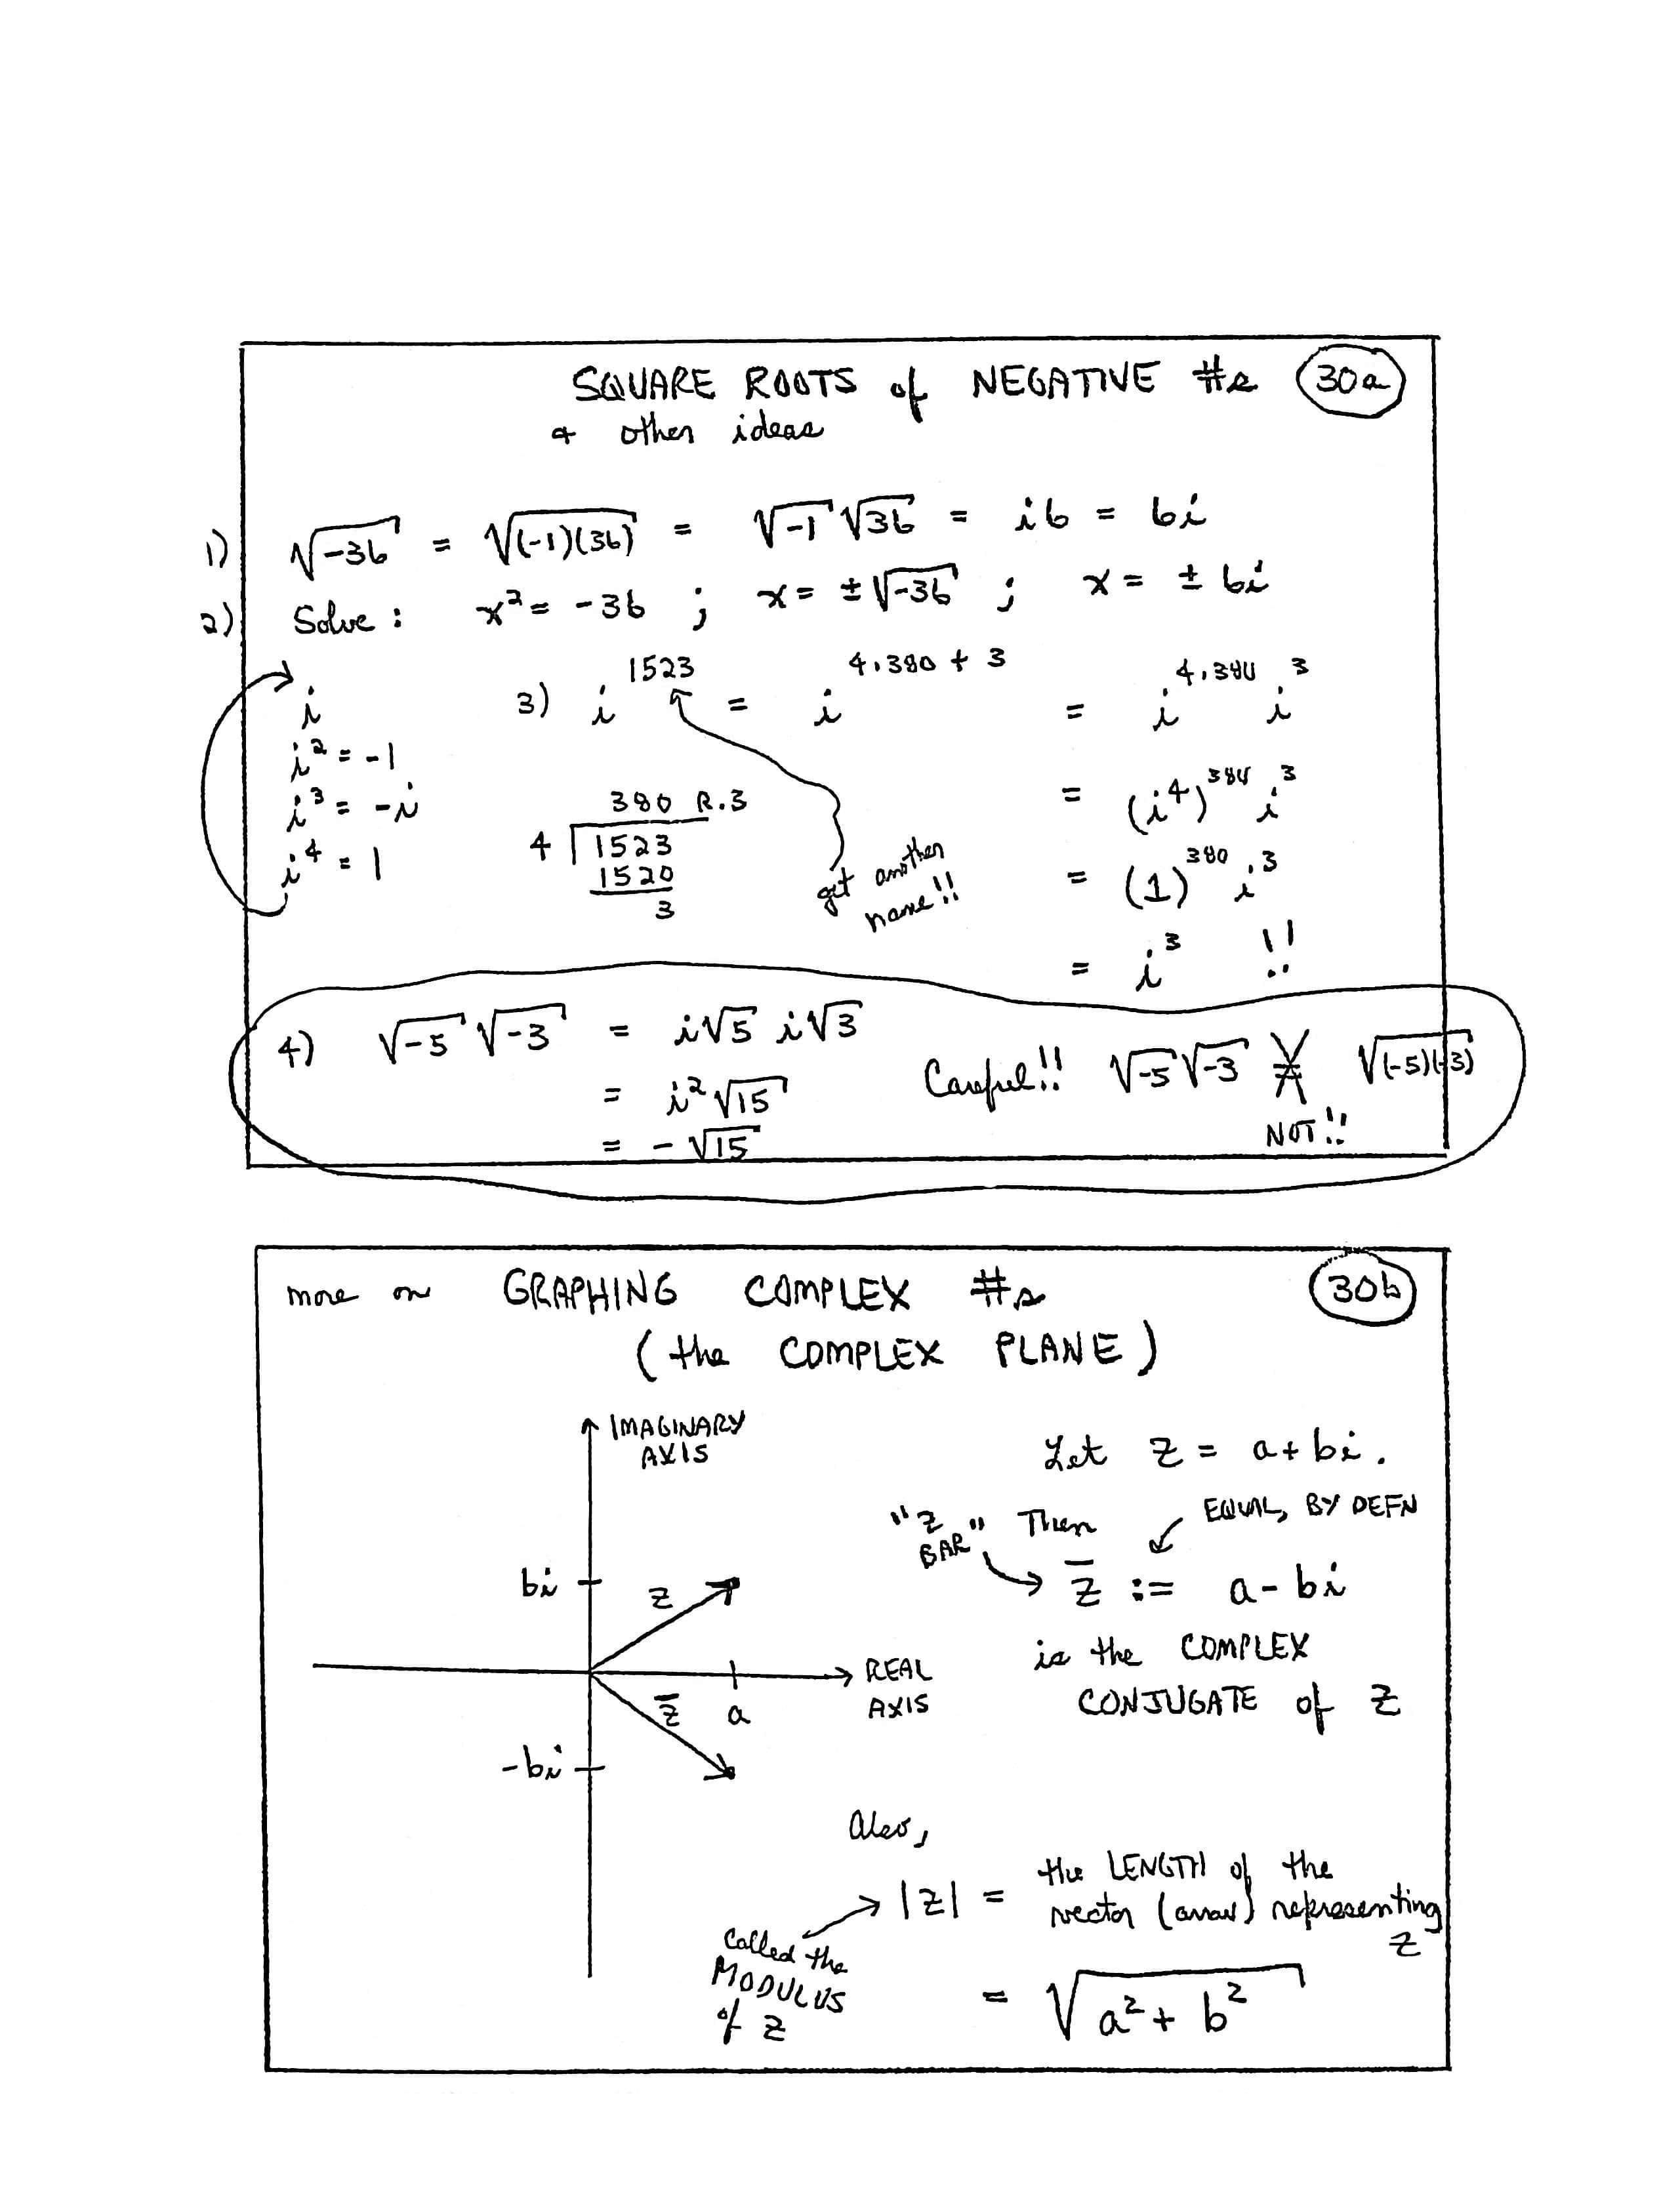 SQUARE ROOTS of NEGATIVE #s 30a
& other ideas
1) √-36 = √(-1)(36) = √-1 √36 = i6 = 6i
2) Solve: x² = -36 ; x = ±√-36 ; x = ± 6i
i
i² = -1
i³ = -i
i⁴ = 1
3) i^1523 = i^(4·380 + 3) = i^(4·380) i³
= (i⁴)^380 i³
= (1)^380 i³
= i³ !!
get another
name!!
380 R.3
4 1523
1520
3
4) √-5 √-3 = i√5 i√3
= i²√15
= -√15
Careful!! √-5 √-3 ≠ √(-5)(-3)
NOT!!
more on GRAPHING COMPLEX #s 30b
(the COMPLEX PLANE)
IMAGINARY
AXIS
bi
z
REAL
AXIS
z̄
a
-bi
Let z = a + bi.
"z
BAR" Then
EQUAL, BY DEFN
z̄ := a - bi
is the COMPLEX
CONJUGATE of z
Also,
|z| = the LENGTH of the
vector (arrow) representing
z
called the
MODULUS
of z
= √a² + b²